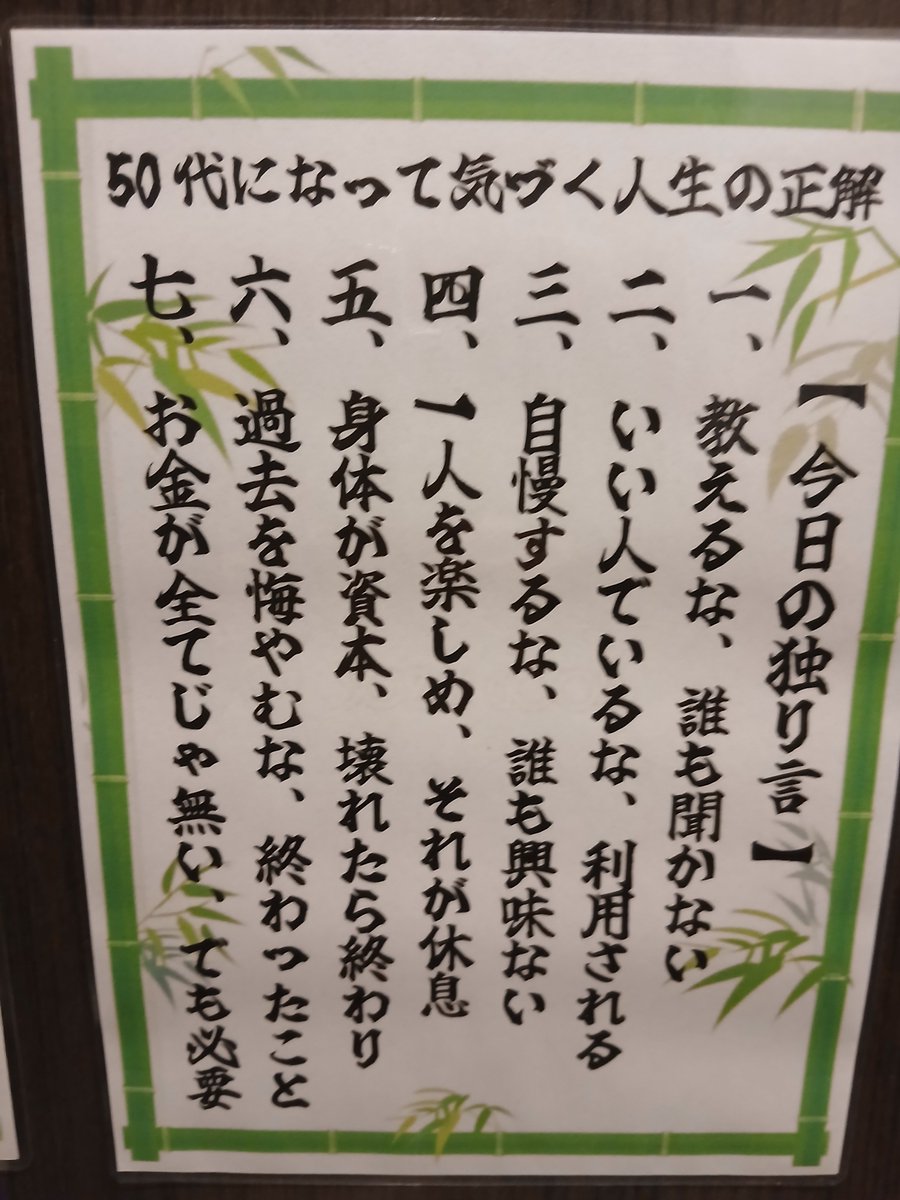 50代になって気づく人生の正解
【今日の独り言】
一、教えるな、誰も聞かない
二、いい人でいるな、利用される
三、自慢するな、誰も興味ない
四、一人を楽しめ、それが休息
五、身体が資本、壊れたら終わり
六、過去を悔やむな、終わったこと
七、お金が全てじゃ無い、ても必要